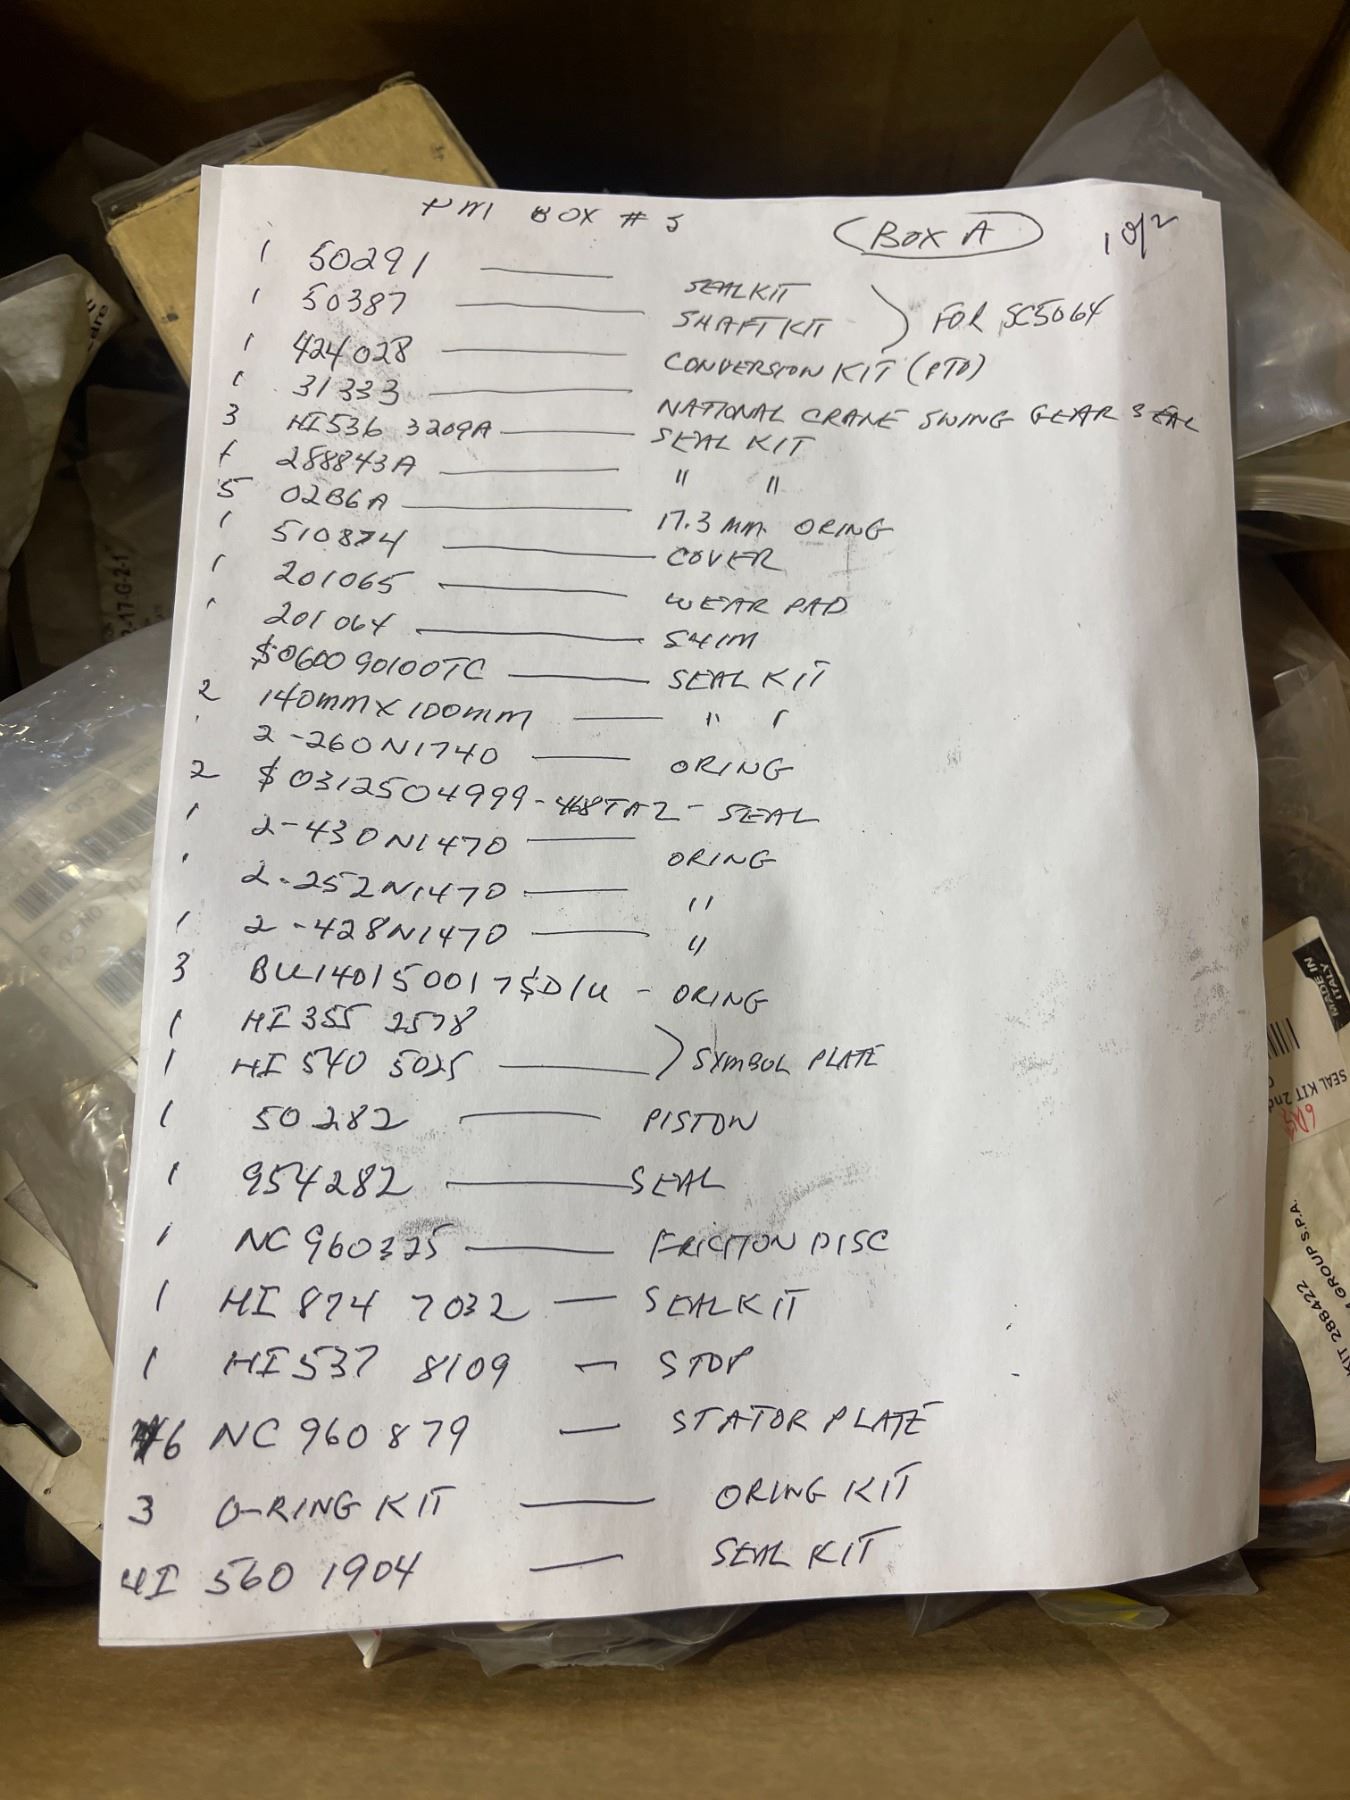 PM BOX # 5 BOX A 1 of 2
1 50291 SEAL KIT
1 50387 SHAFT KIT ) FOR SC5064
1 424028 CONVERSION KIT (PTO)
1 31333 NATIONAL CRANE SWING GEAR SEAL
3 HI536 3209A SEAL KIT
1 288843A " "
5 02B6A 17.3 mm ORING
1 510874 COVER
1 201065 WEAR PAD
1 201064 SHIM
$060090100TC SEAL KIT
2 140mm x 100mm " "
2-260N1740 ORING
2 $0312504999-468TA2 - SEAL
1 2-430N1470 ORING
1 2-252N1470 "
1 2-428N1470 "
3 BU1401500175D/U - ORING
1 HI 355 2578
1 HI 540 5025 ) SYMBOL PLATE
1 50282 PISTON
1 954282 SEAL
1 NC 960325 FRICTION DISC
1 HI 874 7032 - SEAL KIT
1 HI 537 8109 - STOP
6 NC 960879 - STATOR PLATE
3 O-RING KIT ORING KIT
HI 560 1904 - SEAL KIT
MADE IN
ITALY
SEAL KIT 2nd
KIT 288422
GROUP S.P.A.
-17-G-2-1